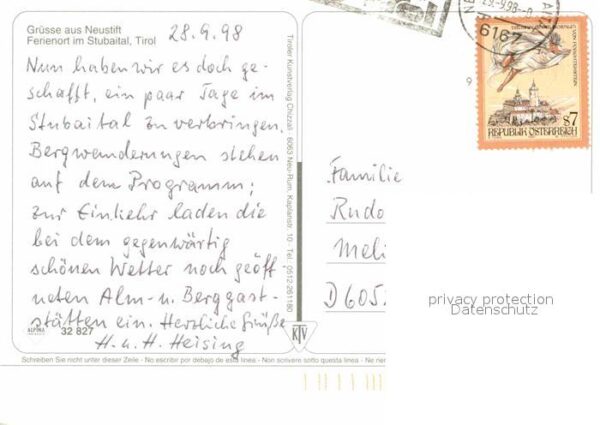 Grüsse aus Neustift
Ferienort im Stubaital, Tirol
28.9.98
Nun haben wir es doch ge-
schafft, ein paar Tage im
Stubaital zu verbringen.
Bergwanderungen stehen
auf dem Programm;
zur Einkehr laden die
bei dem gegenwärtig
schönen Wetter noch geöff
neten Alm- u. Berggast-
stätten ein. Herzliche Grüße
H. u. H. Heising
ALPINA
32 827
Schreiben Sie nicht unter dieser Zeile - No escribir por debajo de esta linea - Non scrivere sotto questa linea - Ne rien
Tiroler Kunstverlag Chizzali · 6063 Neu-Rum, Kaplanstr. 10 · Tel. 0512-261180
KTV
6167
29.-9.98-
S7
REPUBLIK ÖSTERREICH
Familie
Rudo
Meli
D 605
privacy protection
Datenschutz